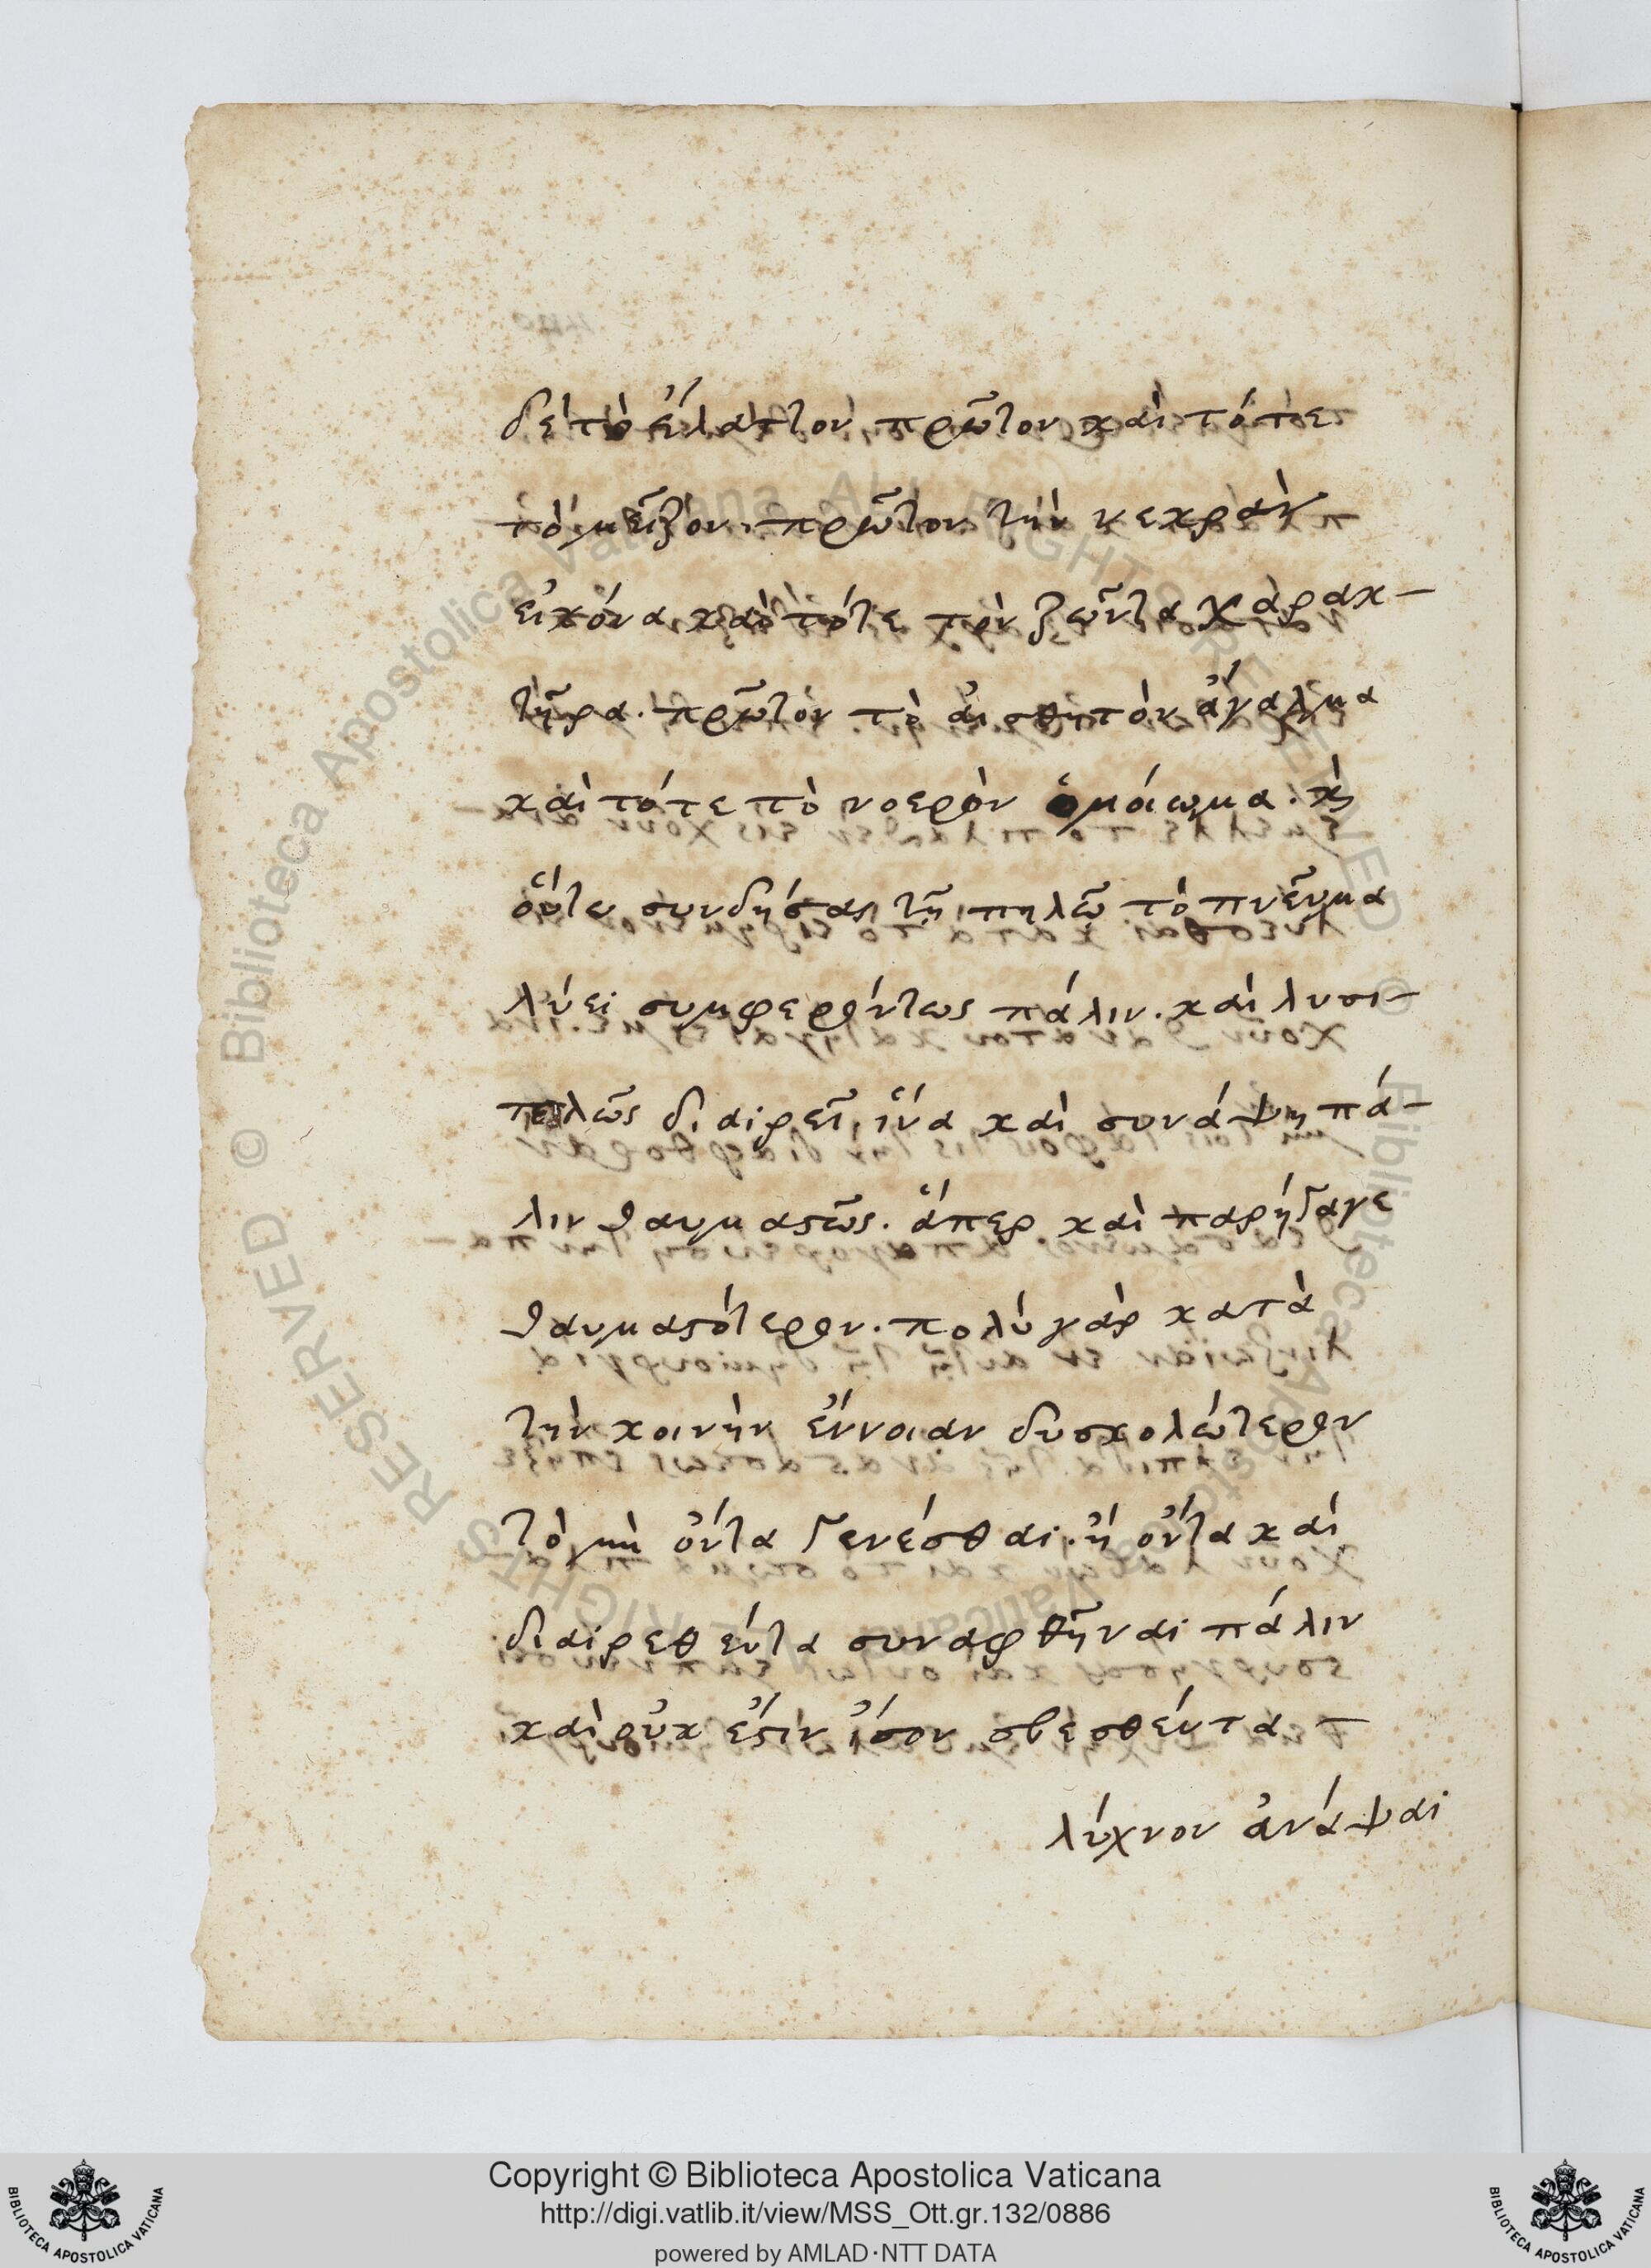 δὲ τὸ ἔλαττον πρῶτον καὶ τότε
τὸ μεῖζον. πρῶτον τὴν νεκρὰν
εἰκόνα καὶ τότε τὸν ζῶντα χαρακ-
τῆρα. πρῶτον τὸ αἰσθητὸν ἄγαλμα
καὶ τότε τὸ νοερὸν ὁμοίωμα. καὶ
συνδήσας τῷ πηλῷ τὸ πνεῦμα
λύει συμφερόντως πάλιν. καὶ λυσι-
τελῶς διαιρεῖ, ἵνα καὶ συνάψῃ πά-
λιν θαυμαστῶς. ἅπερ καὶ παρήγαγε
θαυμαστότερον. πολὺ γὰρ κατὰ
τὴν κοινὴν ἔννοιαν δυσκολώτερον
τὸ μὴ ὄντα γενέσθαι. ἢ ὄντα καὶ
διαιρεθέντα συναφθῆναι πάλιν
καὶ οὐκ ἔστιν ἴσον σβεσθέντα
λύχνον ἀνάψαι
© Biblioteca Apostolica Vaticana ALL RIGHTS RESERVED
Copyright © Biblioteca Apostolica Vaticana
http://digi.vatlib.it/view/MSS_Ott.gr.132/0886
powered by AMLAD·NTT DATA
BIBLIOTECA APOSTOLICA VATICANA
BIBLIOTECA APOSTOLICA VATICANA